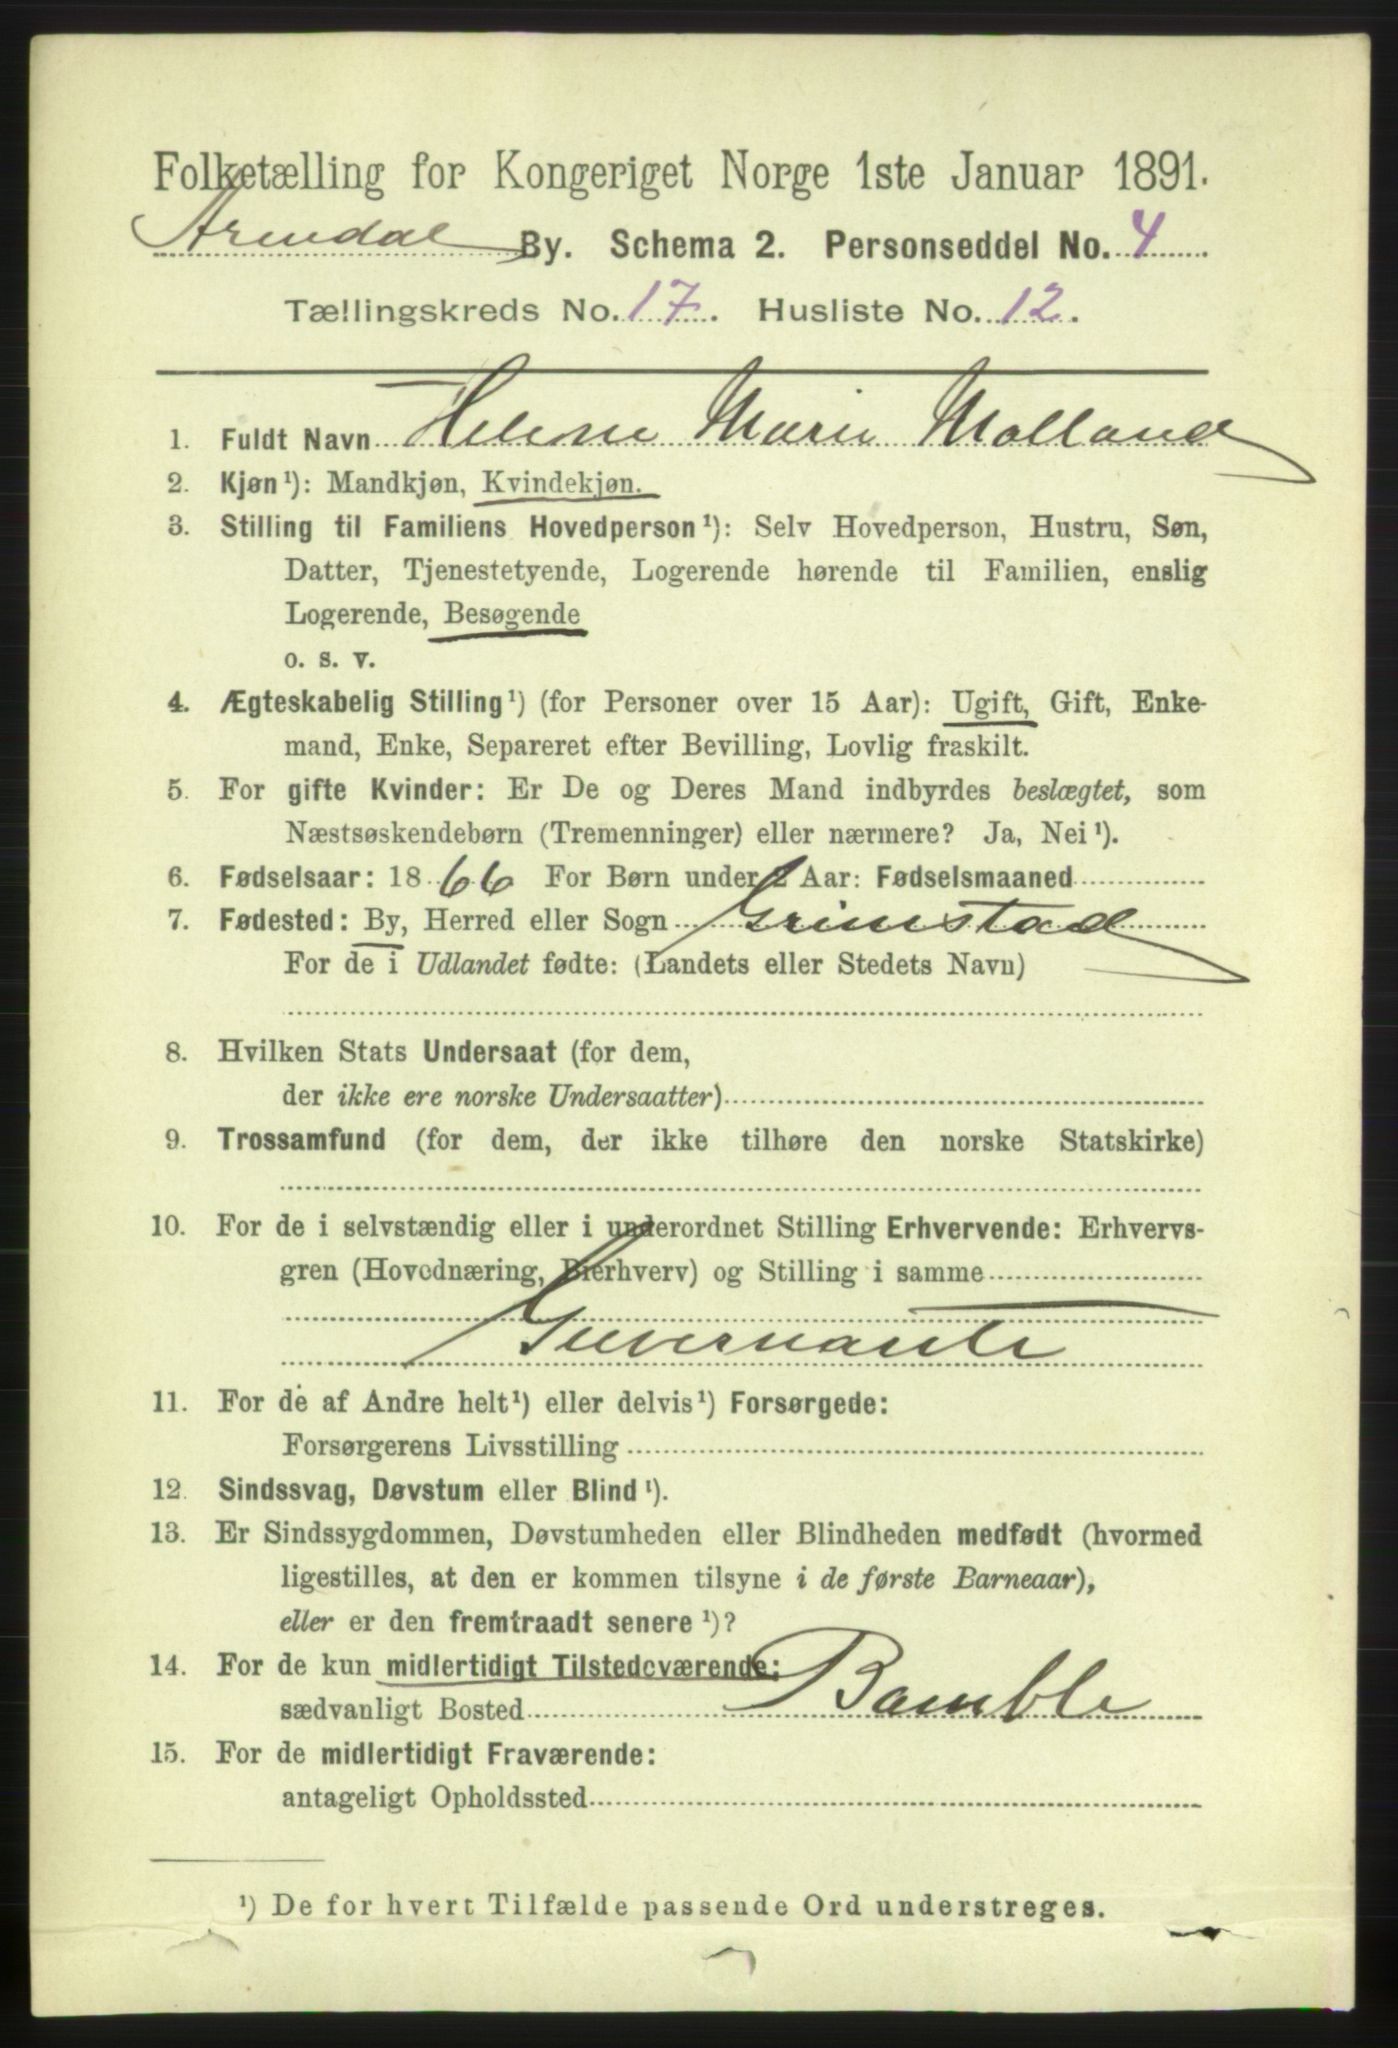 Folketælling for Kongeriget Norge 1ste Januar 1891.
Arendal By. Schema 2. Personseddel No. 4
Tællingskreds No. 17. Husliste No. 12.
1. Fuldt Navn Helene Marie Molland
2. Kjøn¹): Mandkjøn, Kvindekjøn.
3. Stilling til Familiens Hovedperson¹): Selv Hovedperson, Hustru, Søn,
Datter, Tjenestetyende, Logerende hørende til Familien, enslig
Logerende, Besøgende
o. s. v.
4. Ægteskabelig Stilling¹) (for Personer over 15 Aar): Ugift, Gift, Enke-
mand, Enke, Separeret efter Bevilling, Lovlig fraskilt.
5. For gifte Kvinder: Er De og Deres Mand indbyrdes beslægtet, som
Næstsøskendebørn (Tremenninger) eller nærmere? Ja, Nei¹).
6. Fødselsaar: 1866 For Børn under 2 Aar: Fødselsmaaned
7. Fødested: By, Herred eller Sogn Grimstad
For de i Udlandet fødte: (Landets eller Stedets Navn)
8. Hvilken Stats Undersaat (for dem,
der ikke ere norske Undersaatter)
9. Trossamfund (for dem, der ikke tilhøre den norske Statskirke)
10. For de i selvstændig eller i underordnet Stilling Erhvervende: Erhvervs-
gren (Hovednæring, Bierhverv) og Stilling i samme
Guvernante
11. For de af Andre helt¹) eller delvis¹) Forsørgede:
Forsørgerens Livsstilling
12. Sindssvag, Døvstum eller Blind¹).
13. Er Sindssygdommen, Døvstumheden eller Blindheden medfødt (hvormed
ligestilles, at den er kommen tilsyne i de første Barneaar),
eller er den fremtraadt senere¹)?
14. For de kun midlertidigt Tilstedeværende:
sædvanligt Bosted Bamble
15. For de midlertidigt Fraværende:
antageligt Opholdssted
¹) De for hvert Tilfælde passende Ord understreges.